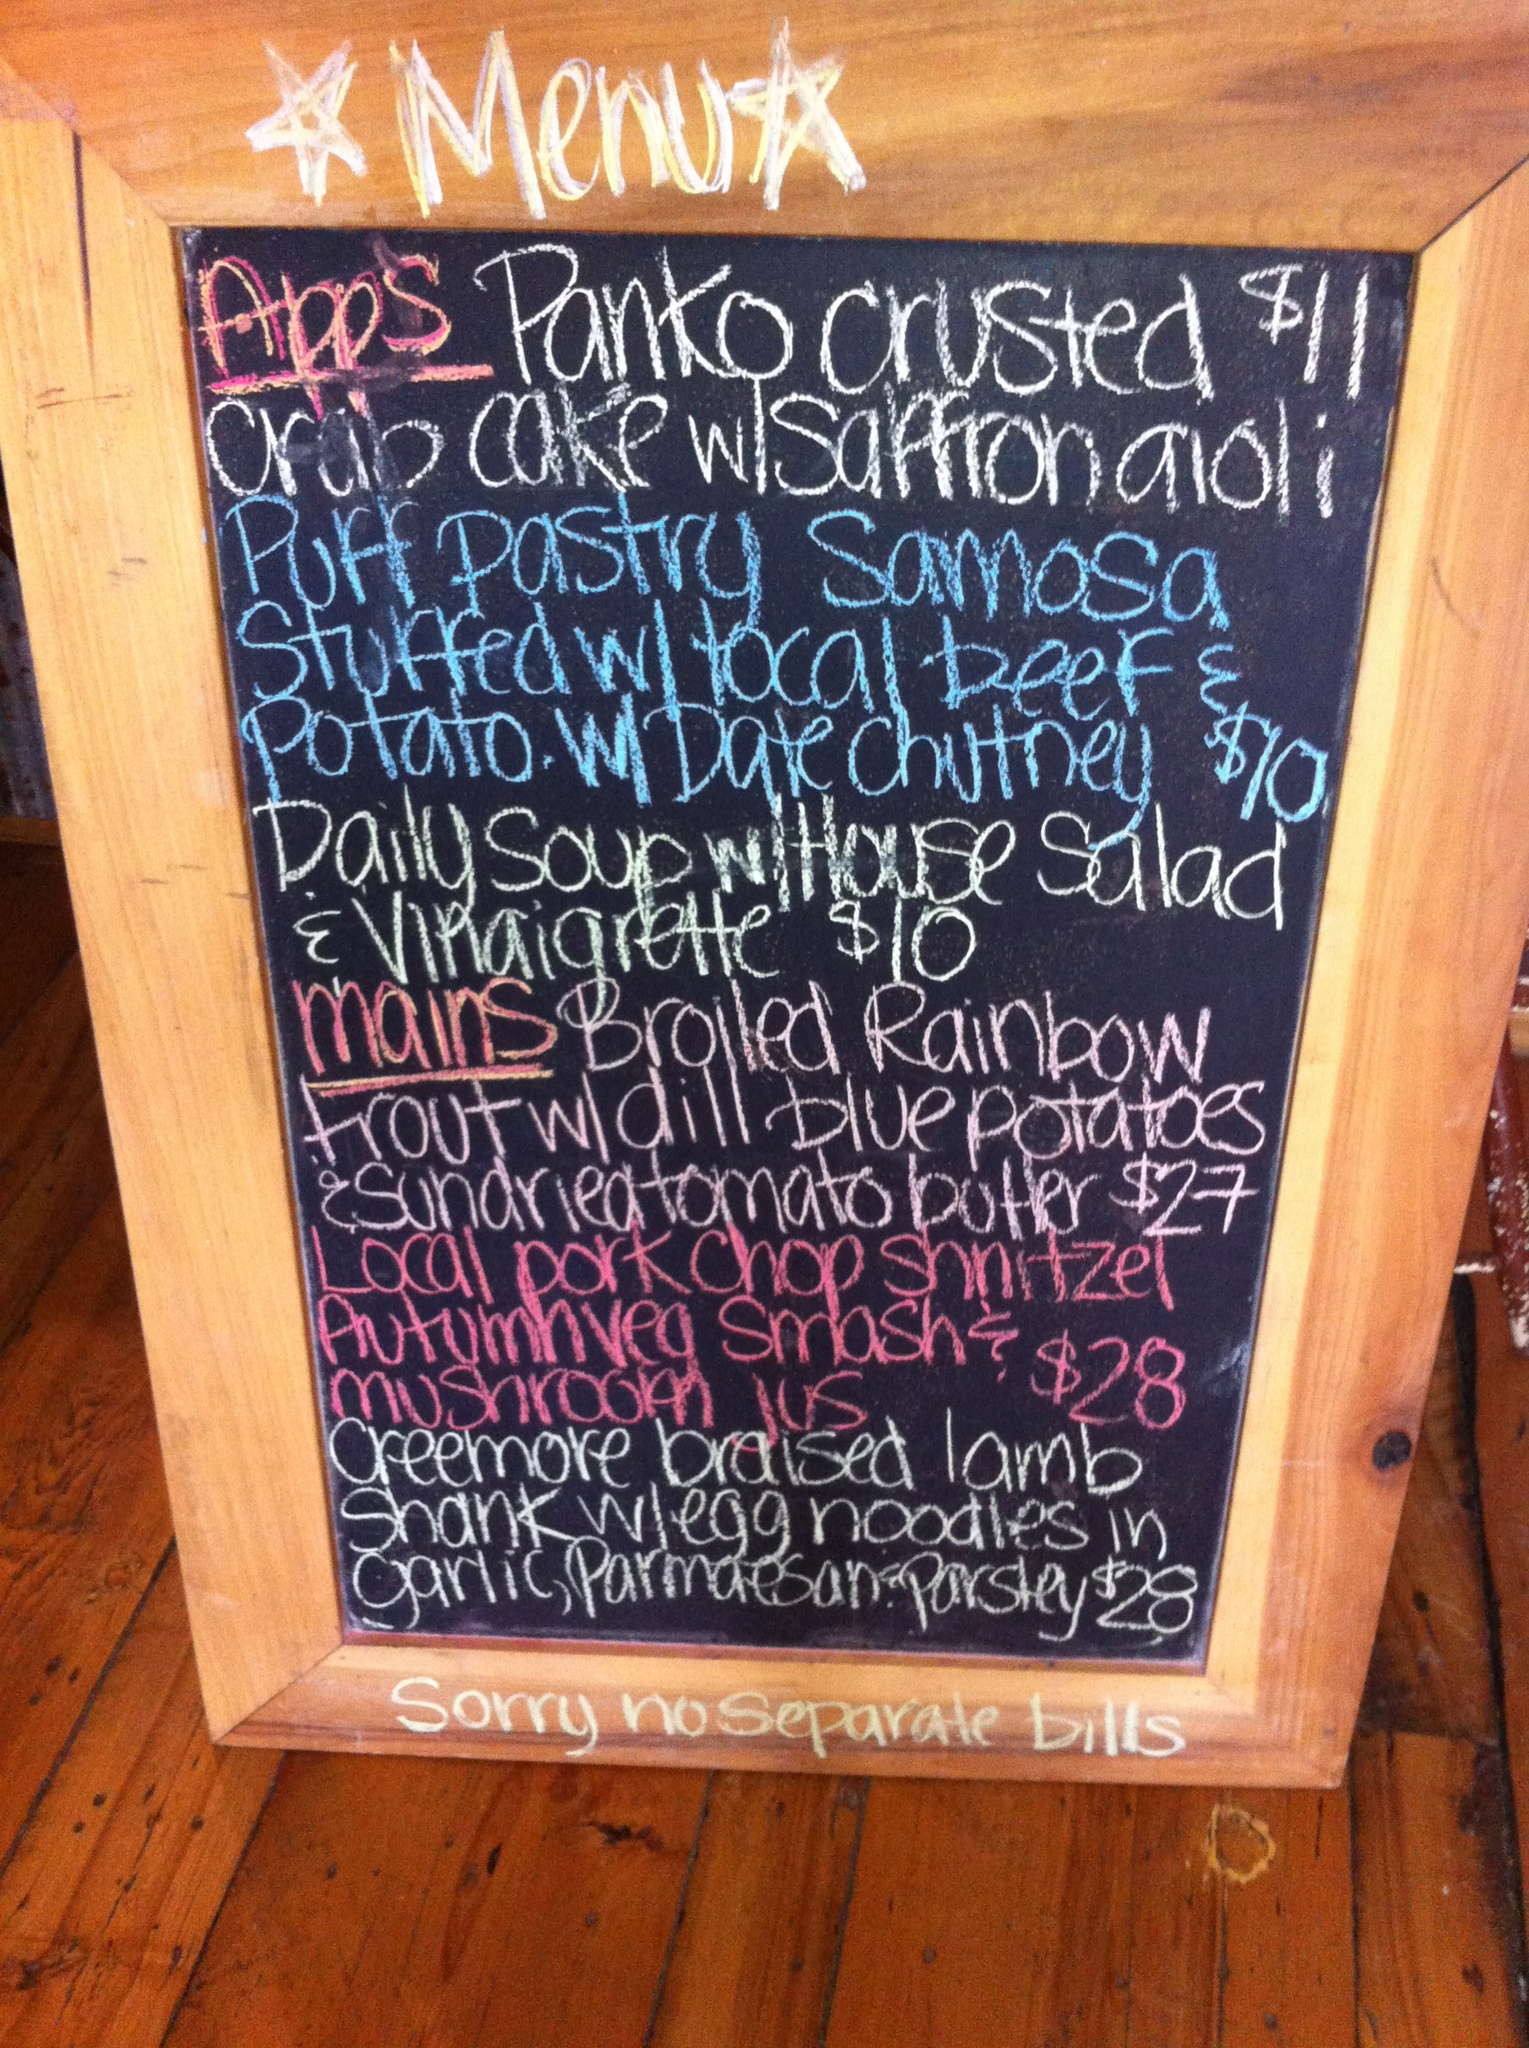 Menu
Apps Panko crusted $11
crab cake w/ saffron aioli
Puff pastry Samosa
Stuffed w/ local beef &
Potato. w/ Date chutney $10
Daily Soup w/ House Salad
& Vinaigrette $10
mains Broiled Rainbow
trout w/ dill blue potatoes
& sundried tomato butter $27
Local pork chop shnitzel
Autumn veg smash &
mushroom jus $28
Creemore braised lamb
shank w/ egg noodles in
garlic, Parmaesan & Parsley $28
Sorry no separate bills